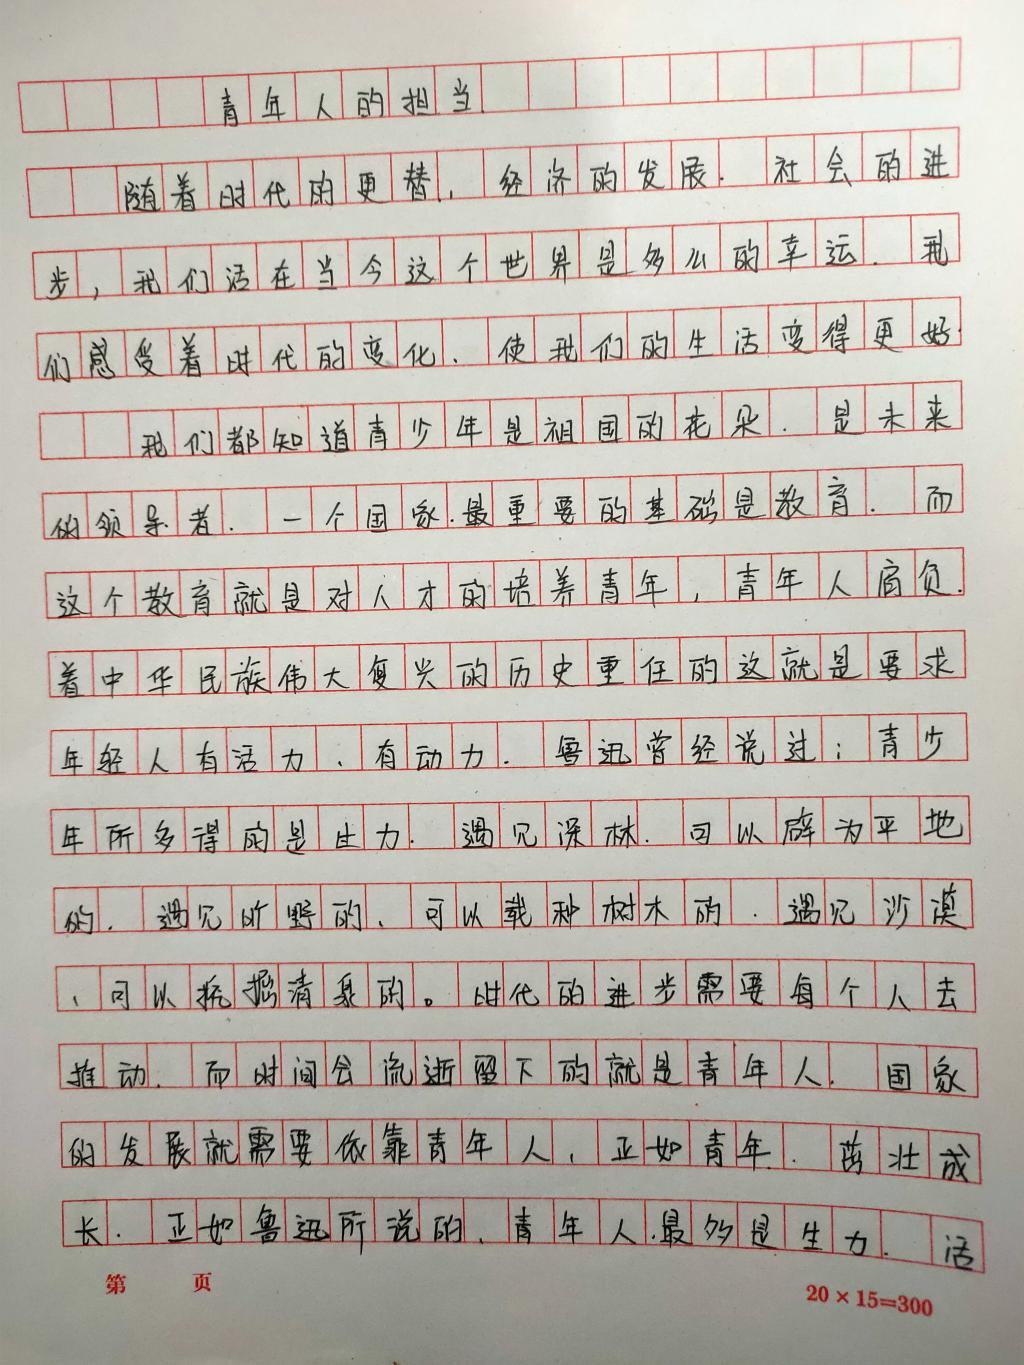 青年人的担当
随着时代的更替，经济的发展.社会的进
步，我们活在当今这个世界是多么的幸运.我
们感受着时代的变化、使我们的生活变得更好.
我们都知道青少年是祖国的花朵.是未来
的领导者.一个国家.最重要的基础是教育.而
这个教育就是对人才的培养青年，青年人肩负.
着中华民族伟大复兴的历史重任的这就是要求
年轻人有活力、有动力.鲁迅曾经说过：青少
年所多得的是生力.遇见深林.可以辟为平地
的.遇见旷野的、可以栽种树木的.遇见沙漠
、可以挖掘清泉的。时代的进步需要每个人去
推动.而时间会流逝留下的就是青年人.国家
的发展就需要依靠青年人、正如青年.茁壮成
长.正如鲁迅所说的、青年人.最多是生力.活
第 页
20×15=300